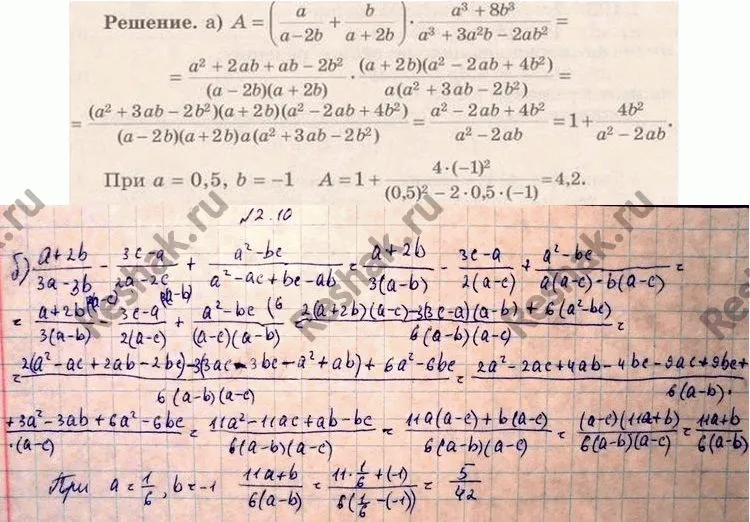 Решение. а) A = (a/(a−2b) + b/(a+2b)) · (a³+8b³)/(a³+3a²b−2ab²) =
= (a²+2ab+ab−2b²)/((a−2b)(a+2b)) · ((a+2b)(a²−2ab+4b²))/(a(a²+3ab−2b²)) =
= ((a²+3ab−2b²)(a+2b)(a²−2ab+4b²))/((a−2b)(a+2b)a(a²+3ab−2b²)) = (a²−2ab+4b²)/(a²−2ab) = 1 + 4b²/(a²−2ab).
При a = 0,5, b = −1 A = 1 + (4·(−1)²)/((0,5)²−2·0,5·(−1)) = 4,2.
№2.10
б) (a+2b)/(3a−3b) − (3c−a)/(2a−2c) + (a²−bc)/(a²−ac+bc−ab) = (a+2b)/(3(a−b)) − (3c−a)/(2(a−c)) + (a²−bc)/(a(a−c)−b(a−c)) =
= (a+2b)/(3(a−b)) − (3c−a)/(2(a−c)) + (a²−bc)/((a−c)(a−b)) = (2(a+2b)(a−c)−3(3c−a)(a−b)+6(a²−bc))/(6(a−b)(a−c)) =
= (2(a²−ac+2ab−2bc)−3(3ac−3bc−a²+ab)+6a²−6bc)/(6(a−b)(a−c)) = (2a²−2ac+4ab−4bc−9ac+9bc+)/(6(a−b)·)
(+3a²−3ab+6a²−6bc)/(·(a−c)) = (11a²−11ac+ab−bc)/(6(a−b)(a−c)) = (11a(a−c)+b(a−c))/(6(a−b)(a−c)) = ((a−c)(11a+b))/(6(a−b)(a−c)) = (11a+b)/(6(a−b))
При a=1/6, b=−1 (11a+b)/(6(a−b)) = (11·1/6+(−1))/(6(1/6−(−1))) = 5/42
Reshak.ru
Reshak.ru
Reshak.ru